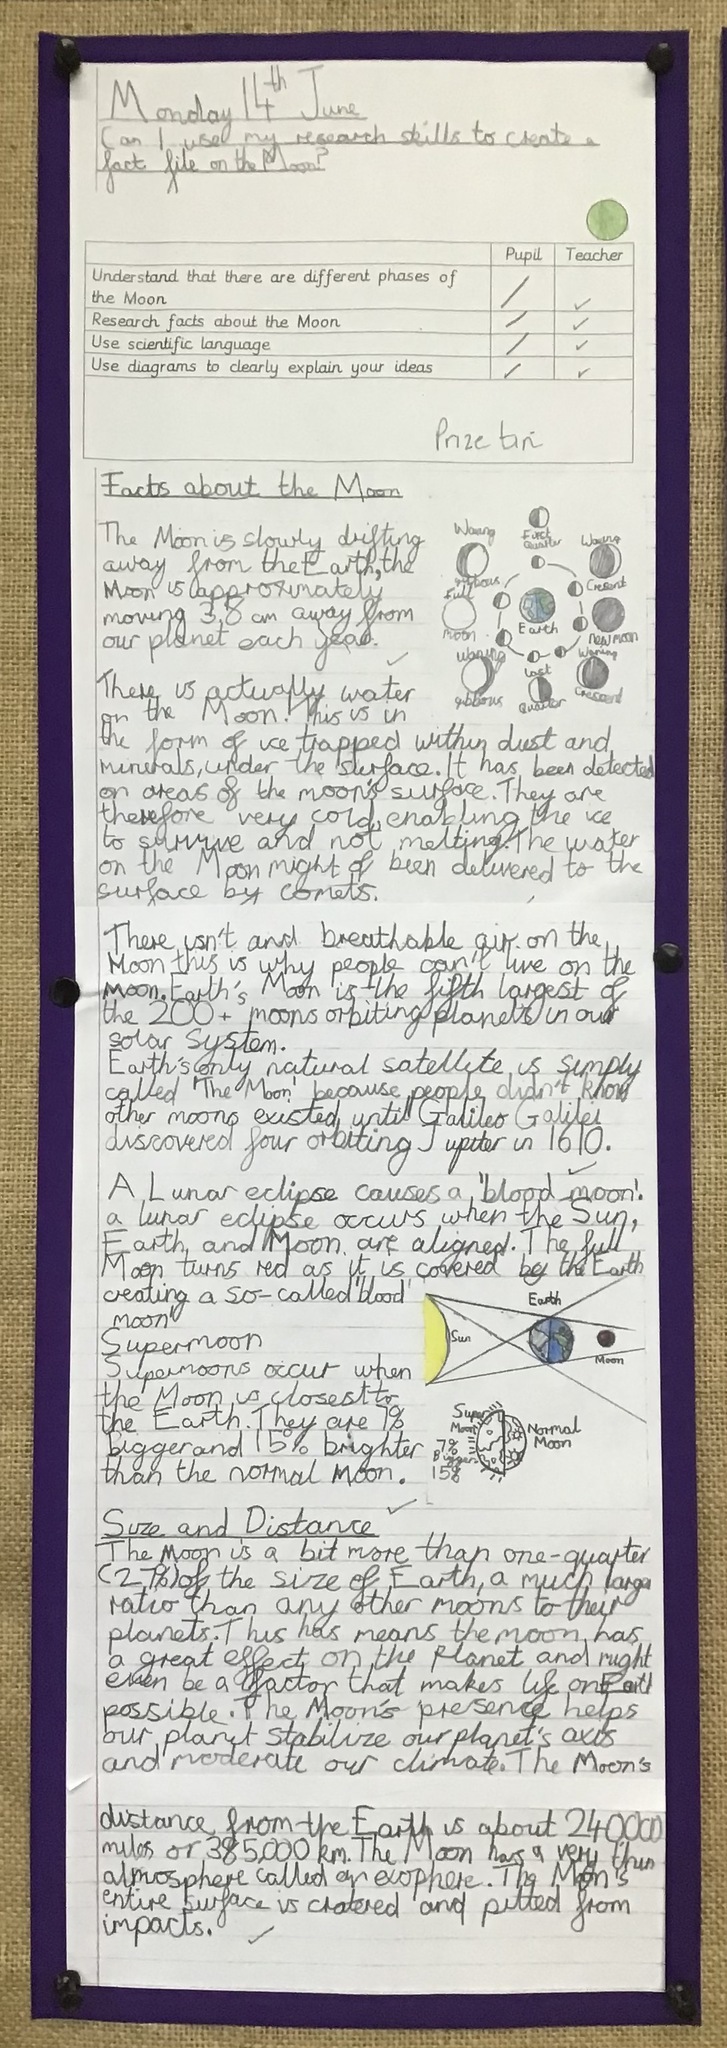 Monday 14th June
Can I use my research skills to create a
fact file on the Moon?
Pupil Teacher
Understand that there are different phases of
the Moon
Research facts about the Moon
Use scientific language
Use diagrams to clearly explain your ideas
Prize tin
Facts about the Moon
The Moon is slowly drifting
away from the Earth, the
Moon is approximately
moving 3,8 cm away from
our planet each year.
First
Quarter
Waxing
Crescent
New moon
Waning
Crescent
Last
Quarter
Waning
gibbous
Full
moon
Waxing
gibbous
Earth
There is actually water
on the Moon! This is in
the form of ice trapped within dust and
minerals, under the surface. It has been detected
on areas of the moon's surface. They are
therefore very cold, enabling the ice
to survive and not melting. The water
on the Moon might of been delivered to the
surface by comets.
There isn't and breathable air on the
Moon this is why people can't live on the
Moon. Earth's Moon is the fifth largest of
the 200+ moons orbiting planets in our
solar System.
Earth's only natural satellite is simply
called 'The Moon' because people didn't know
other moons existed until Galileo Galilei
discovered four orbiting Jupiter in 1610.
A Lunar eclipse causes a 'blood moon'.
a lunar eclipse occurs when the Sun,
Earth and Moon are aligned. The full
Moon turns red as it is covered by the Earth
creating a so-called 'blood'
moon'
Sun
Earth
Moon
Supermoon
Supermoons occur when
the Moon is closest to
the Earth. They are 7%
bigger and 15% brighter
than the normal Moon.
Super
Moon
7%
Bigger
15%
Normal
Moon
Size and Distance
The Moon is a bit more than one-quarter
(27%) of the size of Earth, a much larger
ratio than any other moons to their
planets. This has means the moon has
a great effect on the Planet and might
even be a factor that makes life on Earth
possible. The Moon's presence helps
our planet stabilize our planet's axis
and moderate our climate. The Moon's
distance from the Earth is about 240000
miles or 385,000 km. The Moon has a very thin
atmosphere called an exophere. The Moon's
entire surface is cratered and pitted from
impacts.